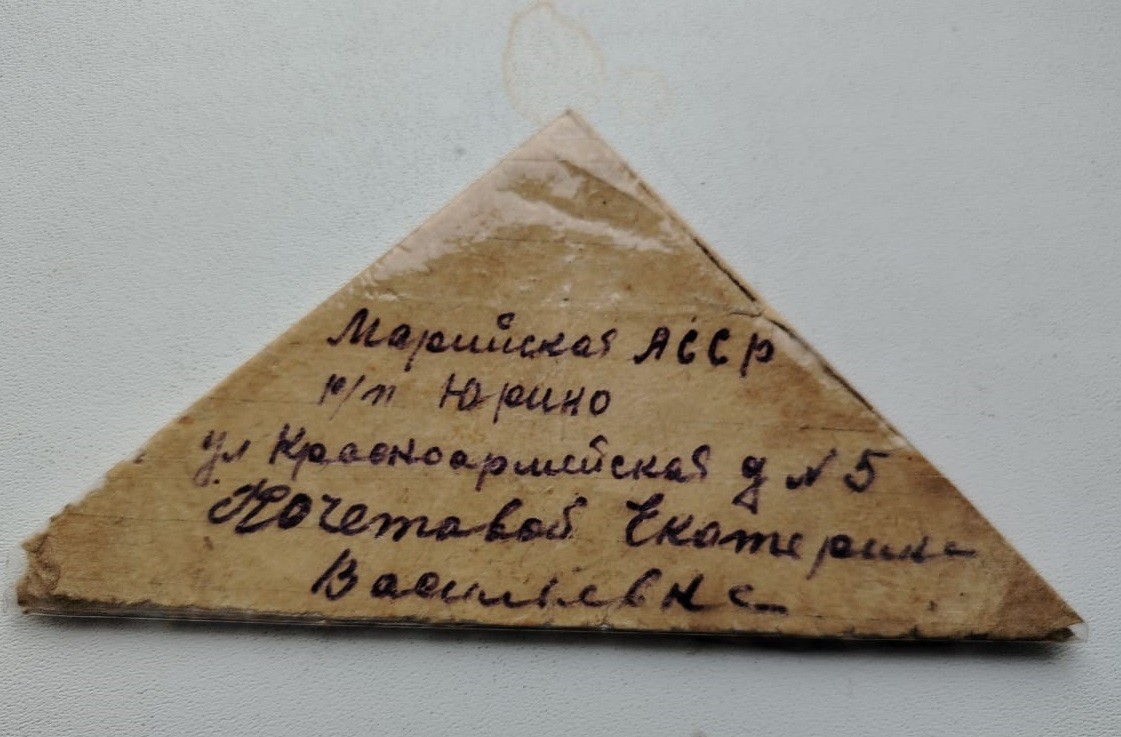 Марийская АССР
р/п Юрино
ул Красноармейская д N 5
Кочетовой Екатерине
Васильевне